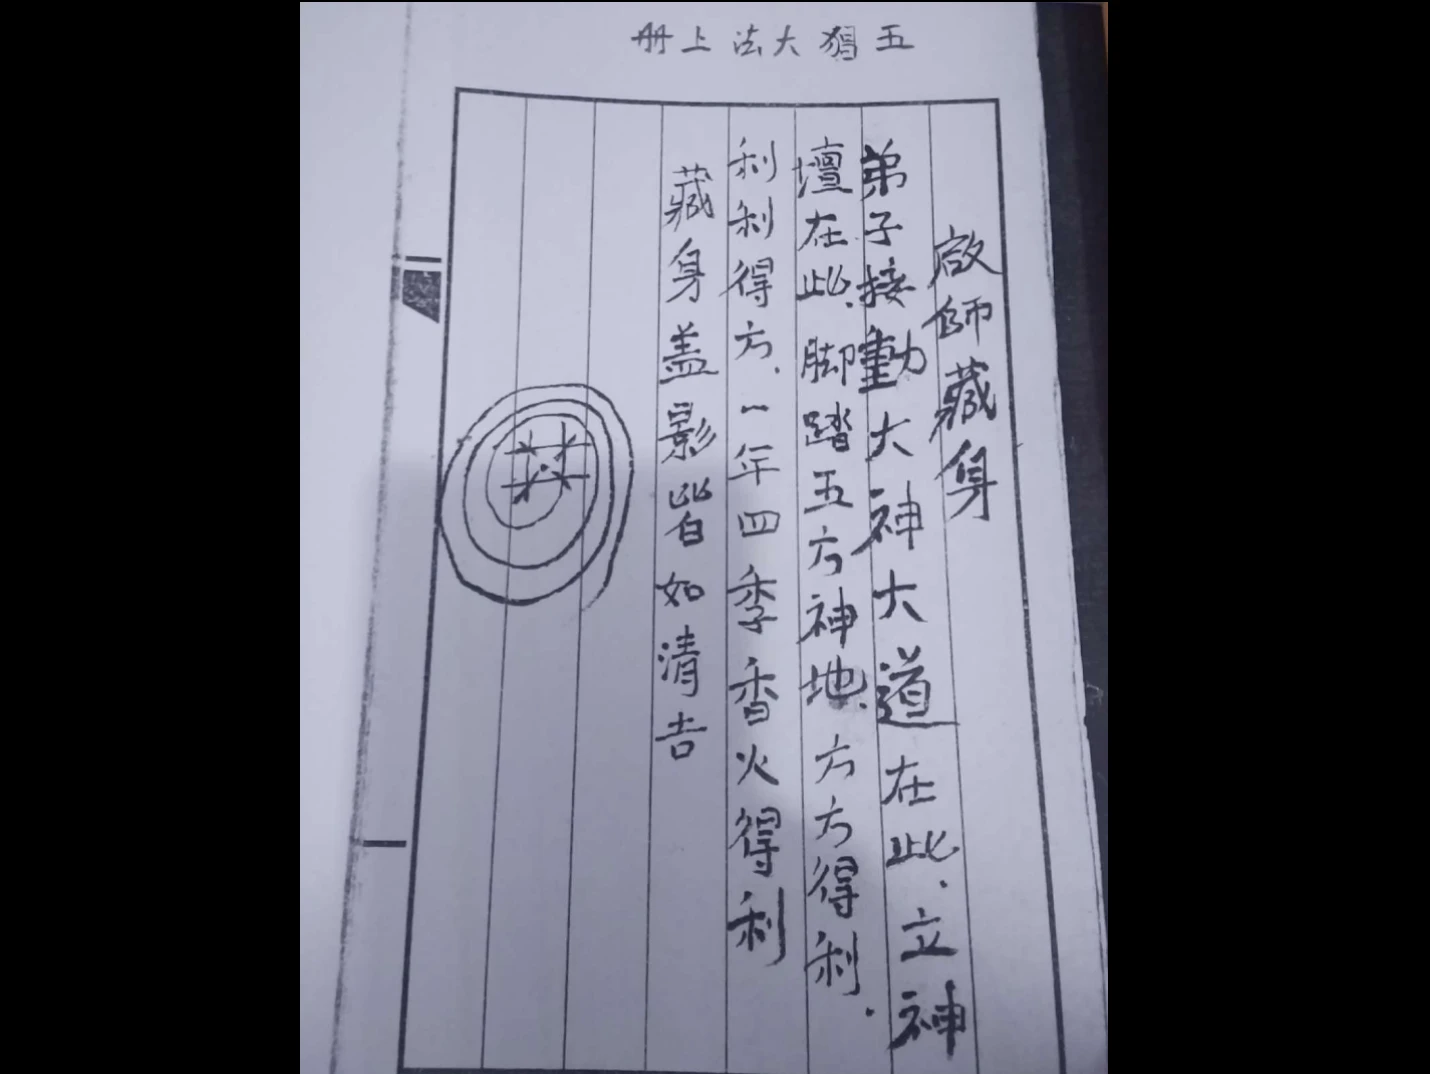 五猖大法上册
啟師藏身
弟子接動大神大道在此、立神
壇在此、脚踏五方神地、方方得利、
利利得方、一年四季香火得利
藏身盖影皆如清吉
井